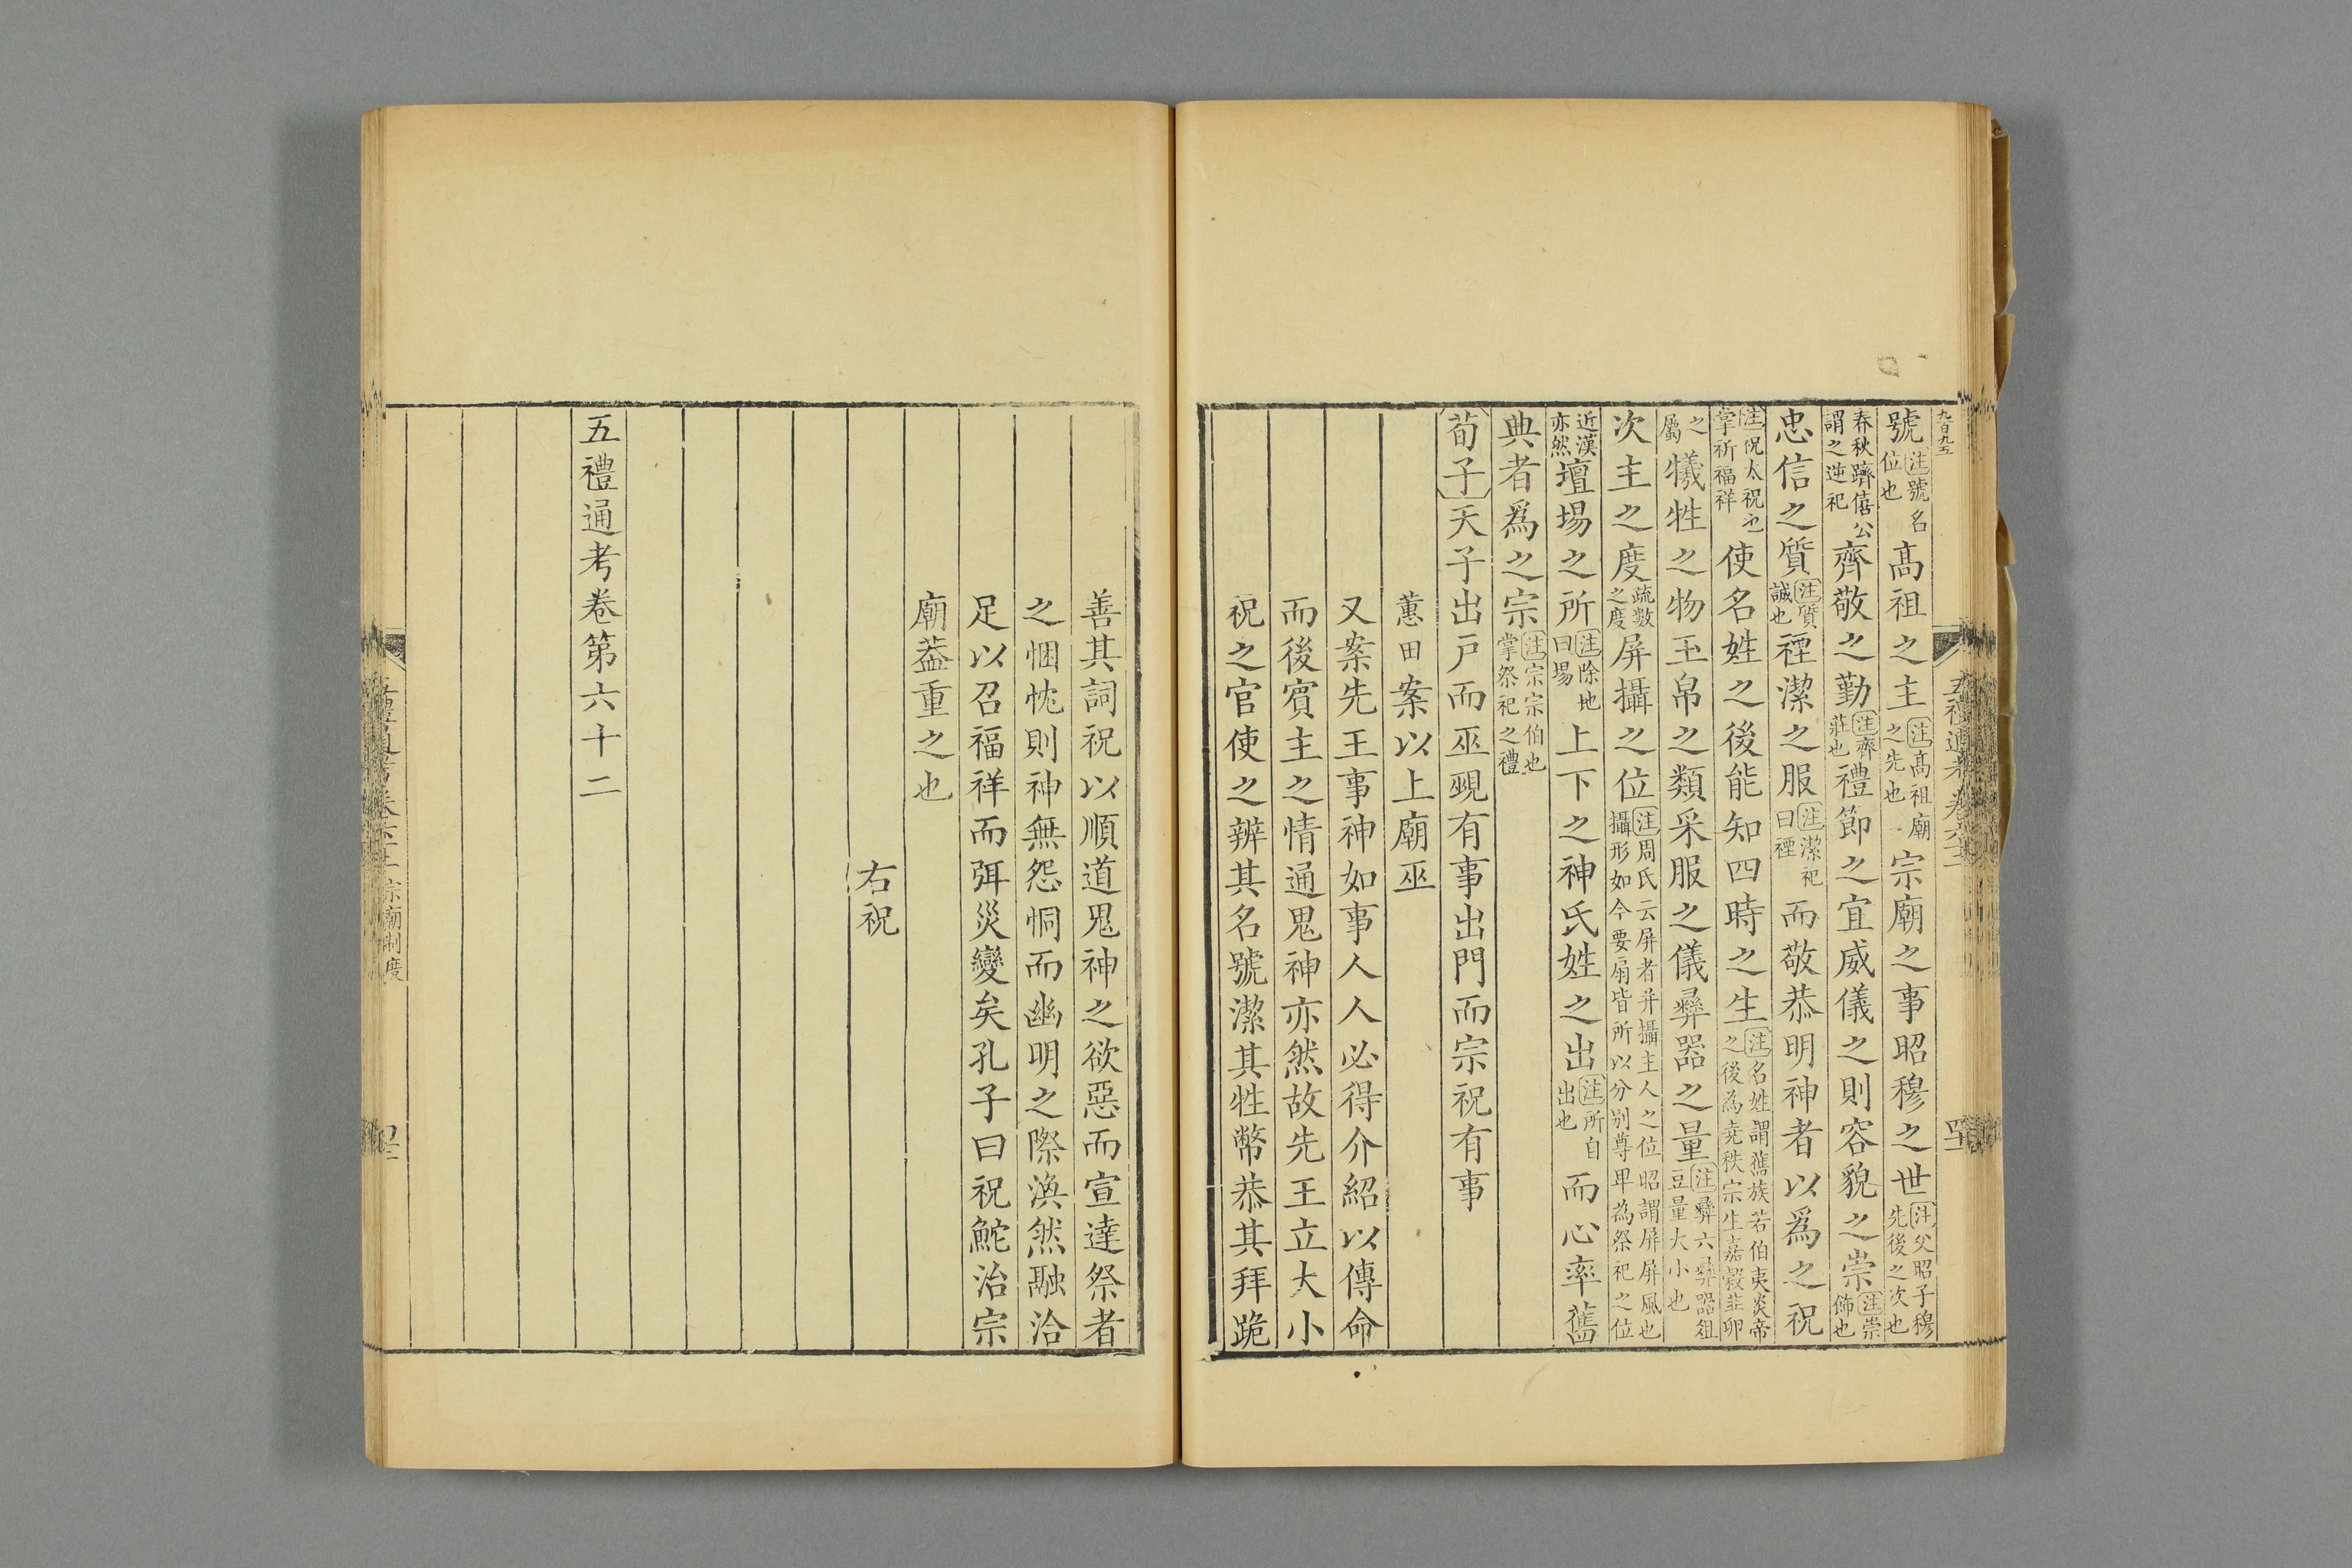 九百九五
五禮通考卷六十二
號注號名位也高祖之主注高祖廟之先也宗廟之事昭穆之世注父昭子穆先後之次也
春秋躋僖公謂之逆祀齊敬之勤注齊莊也禮節之宜威儀之則容貌之崇注崇飾也
忠信之質注質誠也禋潔之服注潔祀曰禋而敬恭明神者以爲之祝
注祝太祝也掌祈福祥使名姓之後能知四時之生注名姓謂舊族若伯夷炎帝之後為堯秩宗生嘉穀韭卵
之屬犧牲之物玉帛之類采服之儀彝器之量注彝六彝器俎豆量大小也
次主之度疏數之度屏攝之位注周氏云屏者并攝主人之位昭謂屏屏風也攝形如今要扇皆所以分别尊卑為祭祀之位
近漢亦然壇場之所注除地曰場上下之神氏姓之出注所自出也而心率舊
典者爲之宗注宗宗伯也掌祭祀之禮
荀子天子出戸而巫覡有事出門而宗祝有事
蕙田案以上廟巫
又案先王事神如事人人必得介紹以傳命
而後賓主之情通鬼神亦然故先王立大小
祝之官使之辨其名號潔其牲幣恭其拜跪
善其詞祝以順道鬼神之欲惡而宣達祭者
之悃忱則神無怨恫而幽明之際渙然融洽
足以召福祥而弭災變矣孔子曰祝鮀治宗
廟葢重之也
右祝
五禮通考卷第六十二
宗廟制度